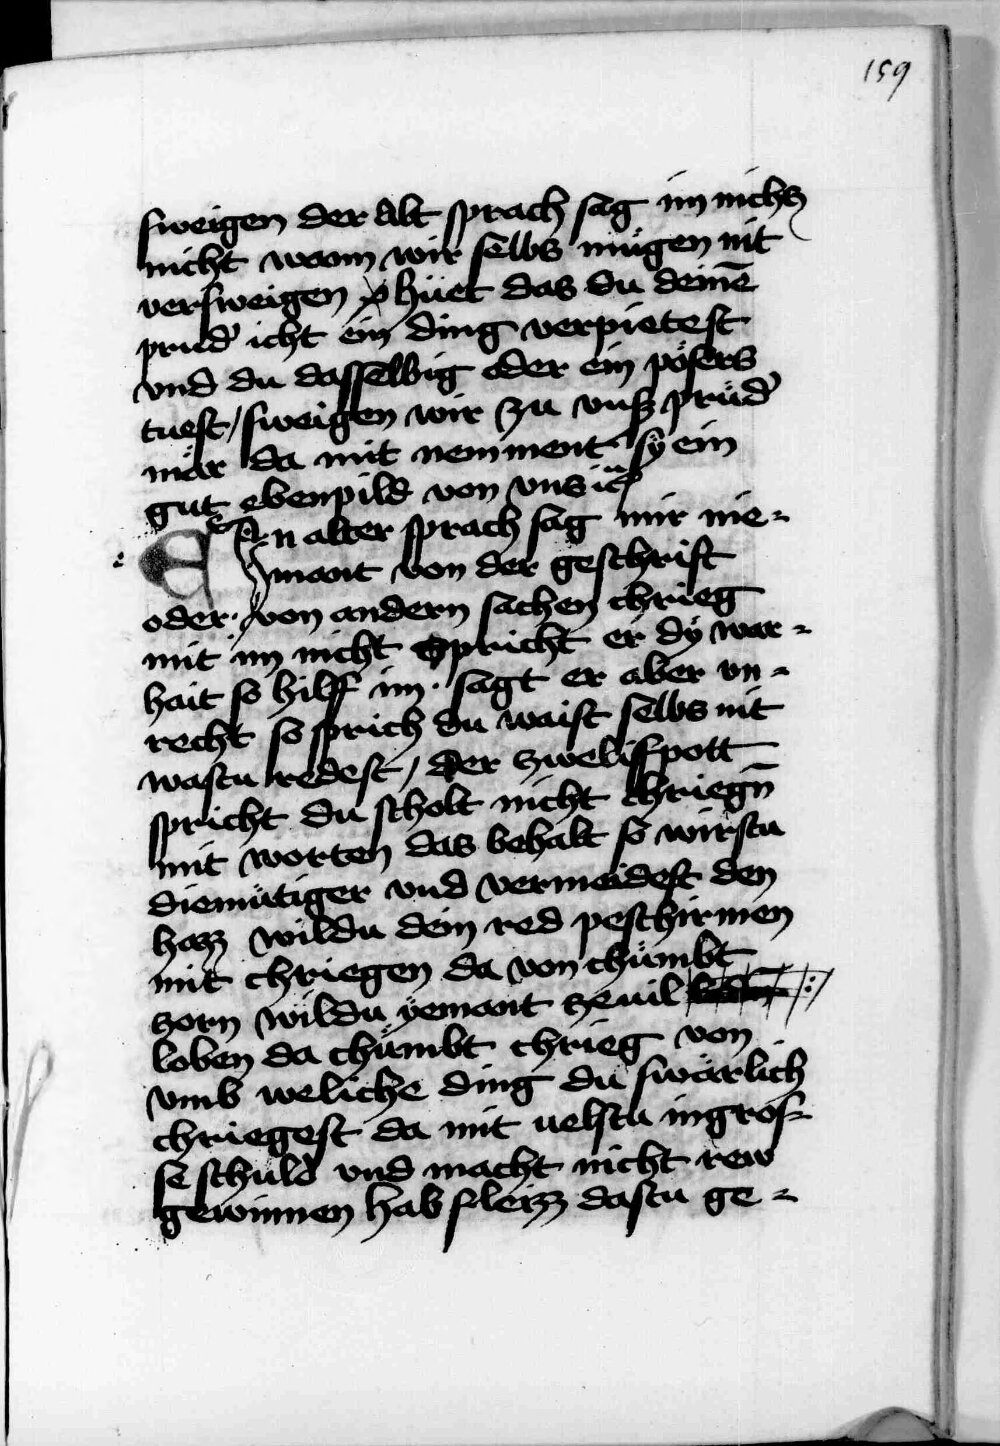 159
sweigen der Abt sprach sag im nichcz
nicht waᷤn wir selbs mügen nit
versweigen hüet das du deinē
prued' icht ein ding verpietest
vnd du dasselbig oder ein pösers
tuest / sweigen wir zu vnsz prüd'
mär da mit nemment sÿ ein
gut ebenpild von vns
Ein alter sprach sag mir nie-
mant von der geschrift
oder von andern sachen chrieg
mit im nicht spricht er dÿ war-
hait so hilff im · sagt er aber vn-
recht so sprich du waist selbs nit
wastu redest / der zwelifpott
spricht du scholt nicht chriegn̄
mit worten das behalt so wirstu
diemütiger vnd vermeidest den
hazz wildu dein red peschirmen
mit chriegen da von chümbt
zorn wildu yemant zeuil
loben da chümbt chrieg von
vmb weliche ding du swärlich
chriegest da mit uelstu in gros-
se schuld vnd macht nicht rew
gewinnen hab fleizz dastu ge-